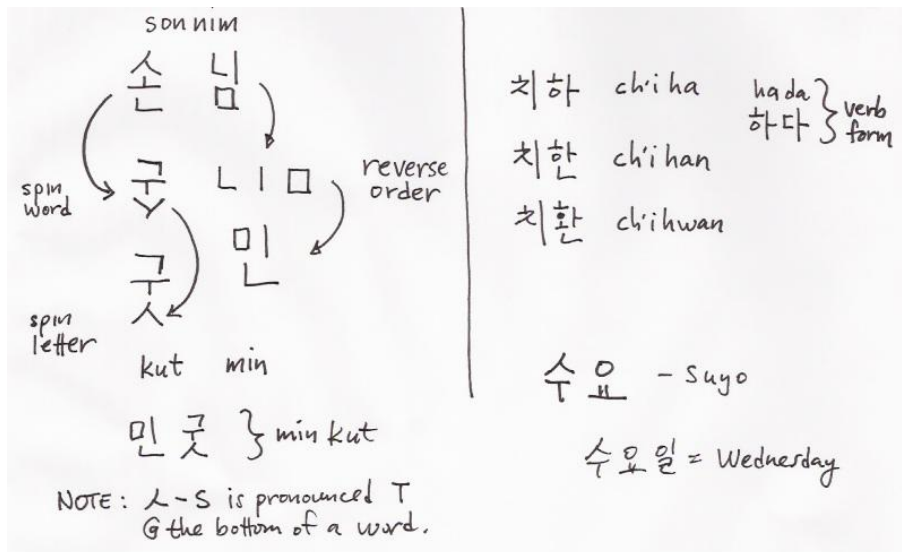 sonnim
손 님
spin word
굿
ㄴ ㅣ ㅁ
reverse order
민
굿
spin letter
kut min
민 굿 } min kut
NOTE: ㅅ-S is pronounced T
@ the bottom of a word.
치하 ch'i ha
hada
하다 } verb form
치한 ch'i han
치환 ch'i hwan
수요 - Suyo
수요일 = Wednesday